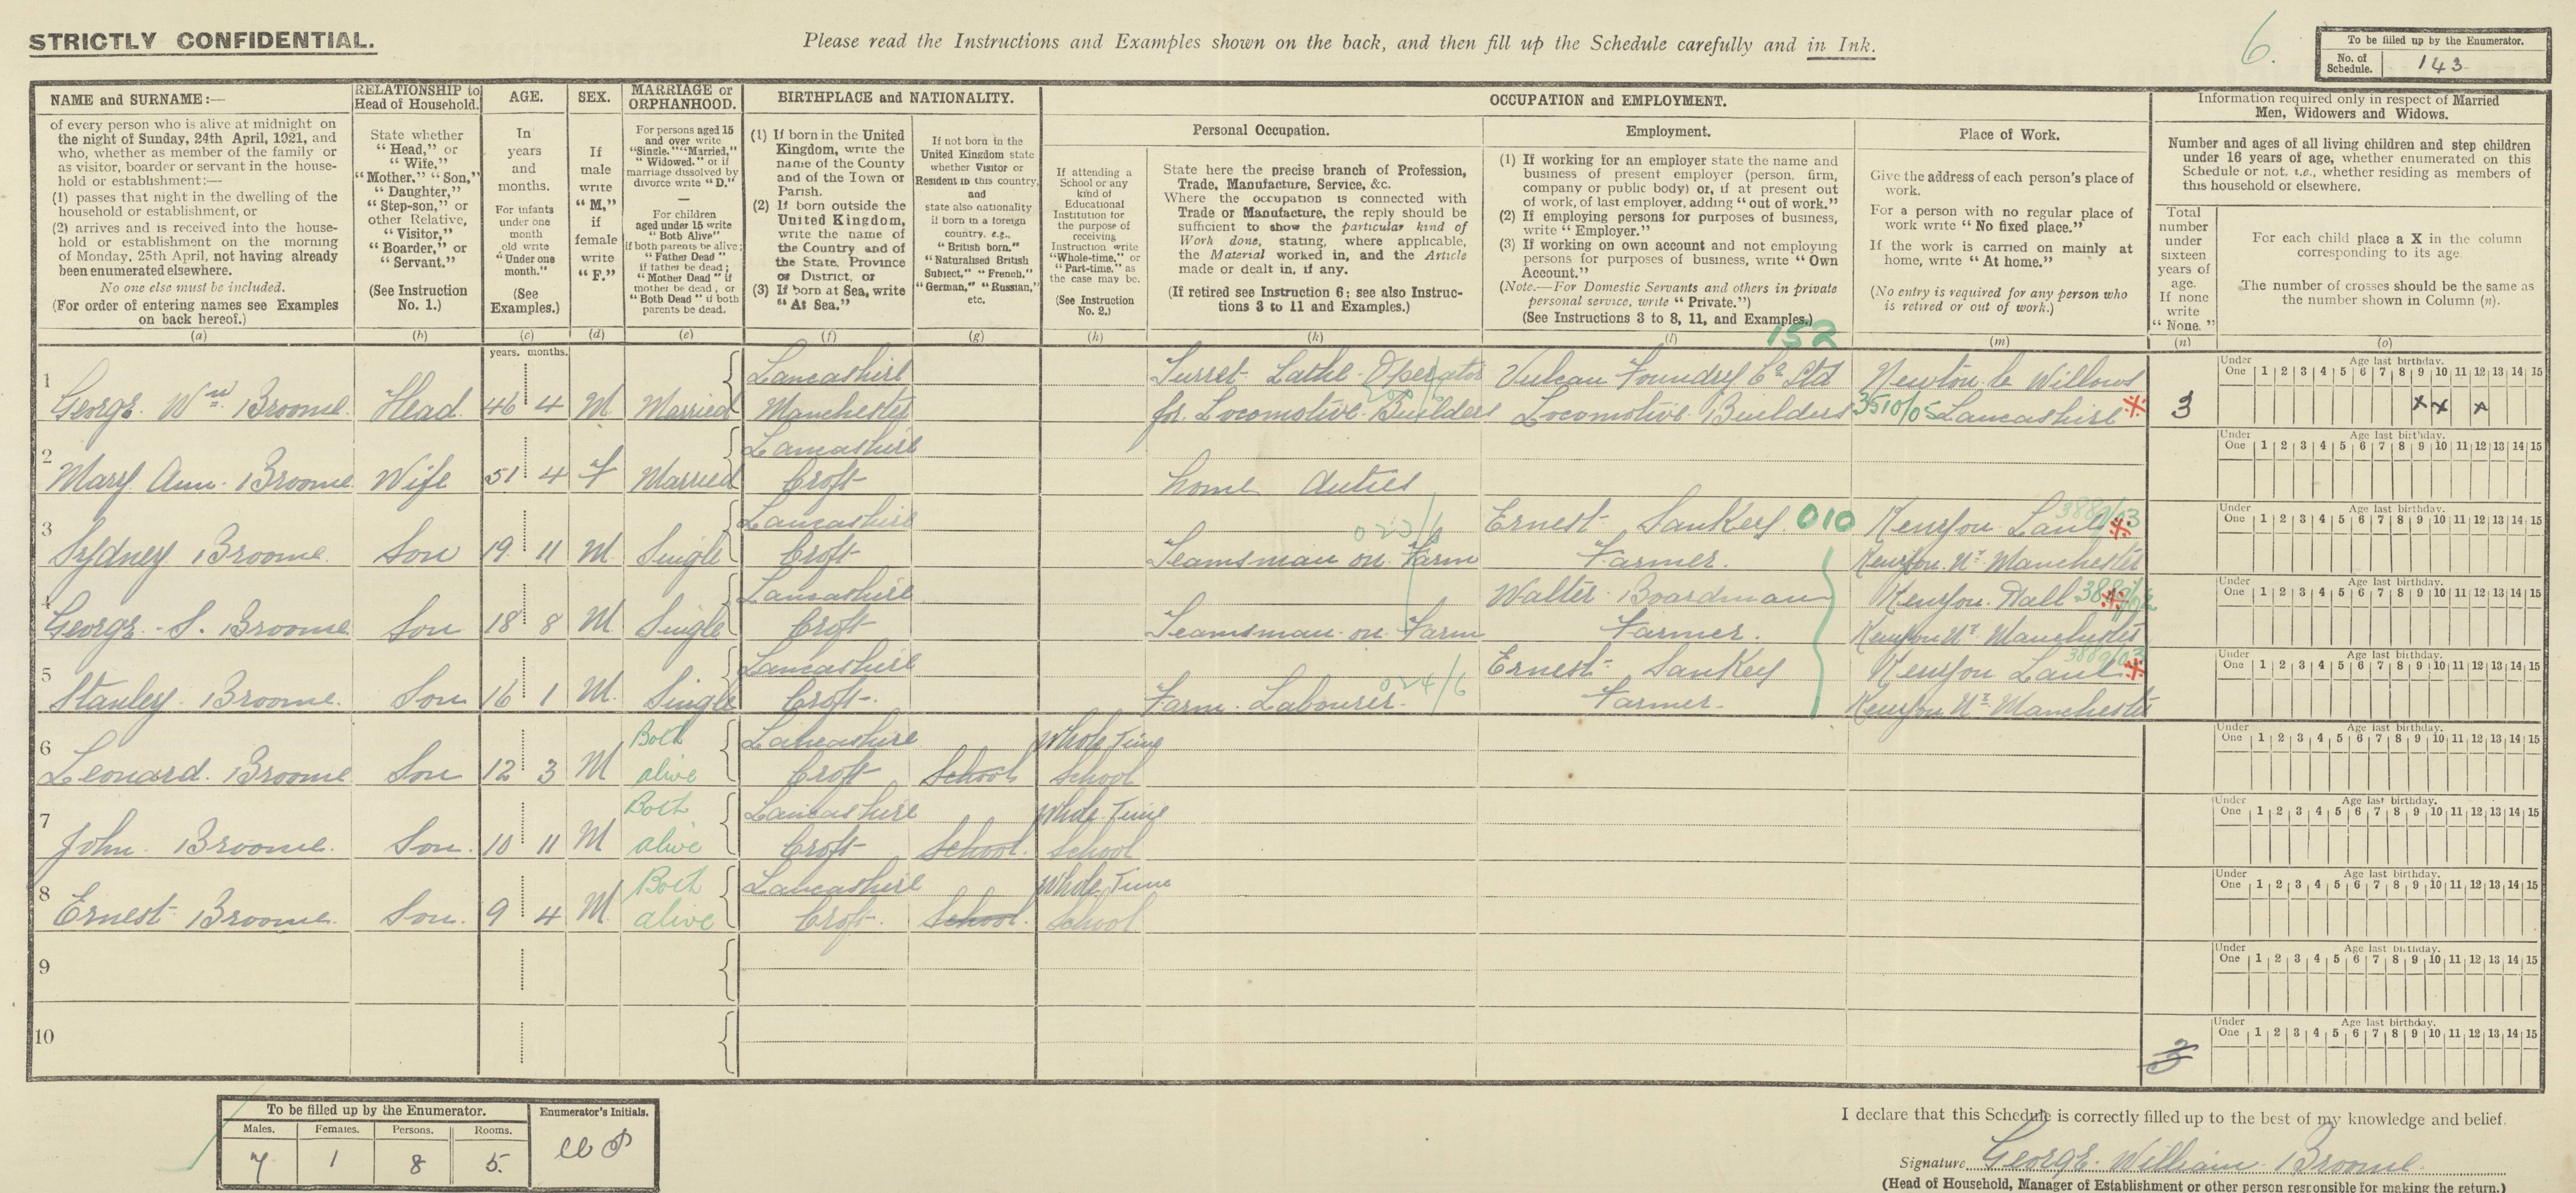 STRICTLY CONFIDENTIAL.
Please read the Instructions and Examples shown on the back, and then fill up the Schedule carefully and in Ink.
6.
To be filled up by the Enumerator.
No. of Schedule. 143
NAME and SURNAME:—
of every person who is alive at midnight on
the night of Sunday, 24th April, 1921, and
who, whether as member of the family or
as visitor, boarder or servant in the house-
hold or establishment:—
(1) passes that night in the dwelling of the
household or establishment, or
(2) arrives and is received into the house-
hold or establishment on the morning
of Monday, 25th April, not having already
been enumerated elsewhere.
No one else must be included.
(For order of entering names see Examples
on back hereof.)
(a)
RELATIONSHIP to
Head of Household.
State whether
"Head," or
"Wife,"
"Mother," "Son,"
"Daughter,"
"Step-son," or
other Relative,
"Visitor,"
"Boarder," or
"Servant."
(See Instruction
No. 1.)
(b)
AGE.
In
years
and
months.
For infants
under one
month
old write
"Under one
month."
(See
Examples.)
(c)
SEX.
If
male
write
"M,"
if
female
write
"F."
(d)
MARRIAGE or
ORPHANHOOD.
For persons aged 15
and over write
"Single," "Married,"
"Widowed," or if
marriage dissolved by
divorce write "D."
—
For children
aged under 15 write
"Both Alive"
if both parents be alive;
"Father Dead"
if father be dead;
"Mother Dead" if
mother be dead, or
"Both Dead" if both
parents be dead.
(e)
BIRTHPLACE and NATIONALITY.
(1) If born in the United
Kingdom, write the
name of the County
and of the Town or
Parish.
(2) If born outside the
United Kingdom,
write the name of
the Country and of
the State, Province
or District, or
(3) If born at Sea, write
"At Sea."
(f)
If not born in the
United Kingdom state
whether Visitor or
Resident in this country,
and
state also nationality
if born in a foreign
country, e.g.,
"British born,"
"Naturalised British
Subject," "French,"
"German," "Russian,"
etc.
(g)
OCCUPATION and EMPLOYMENT.
If attending a
School or any
kind of
Educational
Institution for
the purpose of
receiving
Instruction write
"Whole-time," or
"Part-time," as
the case may be.
(See Instruction
No. 2.)
(h)
Personal Occupation.
State here the precise branch of Profession,
Trade, Manufacture, Service, &c.
Where the occupation is connected with
Trade or Manufacture, the reply should be
sufficient to show the particular kind of
Work done, stating, where applicable,
the Material worked in, and the Article
made or dealt in, if any.
(If retired see Instruction 6; see also Instruc-
tions 3 to 11 and Examples.)
(k)
Employment.
(1) If working for an employer state the name and
business of present employer (person, firm,
company or public body) or, if at present out
of work, of last employer, adding "out of work."
(2) If employing persons for purposes of business,
write "Employer."
(3) If working on own account and not employing
persons for purposes of business, write "Own
Account."
(Note.—For Domestic Servants and others in private
personal service, write "Private.")
(See Instructions 3 to 8, 11, and Examples.)
(l)
152
Place of Work.
Give the address of each person's place of
work.
For a person with no regular place of
work write "No fixed place."
If the work is carried on mainly at
home, write "At home."
(No entry is required for any person who
is retired or out of work.)
(m)
Information required only in respect of Married
Men, Widowers and Widows.
Number and ages of all living children and step children
under 16 years of age, whether enumerated on this
Schedule or not, i.e., whether residing as members of
this household or elsewhere.
Total
number
under
sixteen
years of
age.
If none
write
"None."
(n)
For each child place a X in the column
corresponding to its age.
The number of crosses should be the same as
the number shown in Column (n).
(o)
years. months.
1 George Wm Broome. Head 46 4 M Married Lancashire Manchester
Turret Lathe Operator for Locomotive Builders
Vulcan Foundry Co Ltd Locomotive Builders
Newton le Willows 3510/05 Lancashire
3 x x x
Under One 1 2 3 4 5 6 7 8 9 10 11 12 13 14 15
Age last birthday.
2 Mary Ann Broome Wife 51 4 F Married Lancashire Croft
home duties
Under One 1 2 3 4 5 6 7 8 9 10 11 12 13 14 15
Age last birthday.
3 Sydney Broome Son 19 11 M Single Lancashire Croft
Teamsman on Farm
Ernest Sankey 010 Farmer.
Kenyon Lane
Kenyon Nr Manchester
Under One 1 2 3 4 5 6 7 8 9 10 11 12 13 14 15
Age last birthday.
4 George S. Broome Son 18 8 M Single Lancashire Croft
Teamsman on Farm
Walter Boardman Farmer.
Kenyon Hall
Kenyon Nr Manchester
Under One 1 2 3 4 5 6 7 8 9 10 11 12 13 14 15
Age last birthday.
5 Stanley Broome. Son 16 1 M Single Lancashire Croft.
Farm Labourer. 024/6
Ernest Sankey Farmer.
Kenyon Lane
Kenyon Nr Manchester
Under One 1 2 3 4 5 6 7 8 9 10 11 12 13 14 15
Age last birthday.
6 Leonard Broome Son 12 3 M Both alive Lancashire Croft School Whole Time School
Under One 1 2 3 4 5 6 7 8 9 10 11 12 13 14 15
Age last birthday.
7 John Broome. Son. 10 11 M Both alive Lancashire Croft School. Whole Time School
Under One 1 2 3 4 5 6 7 8 9 10 11 12 13 14 15
Age last birthday.
8 Ernest Broome. Son. 9 4 M Both alive Lancashire Croft. School. Whole Time School
Under One 1 2 3 4 5 6 7 8 9 10 11 12 13 14 15
Age last birthday.
9
Under One 1 2 3 4 5 6 7 8 9 10 11 12 13 14 15
Age last birthday.
10
Under One 1 2 3 4 5 6 7 8 9 10 11 12 13 14 15
Age last birthday.
To be filled up by the Enumerator.
Enumerator's Initials.
Males. Females. Persons. Rooms.
7 1 8 5.
I declare that this Schedule is correctly filled up to the best of my knowledge and belief.
Signature George William Broome
(Head of Household, Manager of Establishment or other person responsible for making the return.)